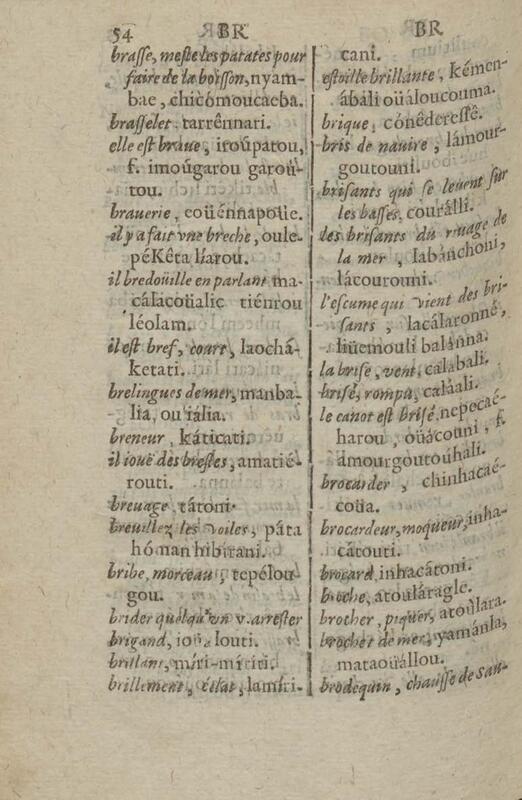 54 BR
brasse, meste les patates pour
faire de la boisson, nyam-
bae, chicómoucaeba.
brasselet, tarrênnari.
elle est braue, iroúpatou,
f. imoúgarou garoú-
tou.
brauerie, coüénnapoüe.
il y a fait vne breche, oule-
péKêta líarou.
il bredoüille en parlant ma-
cálacoüalic tiénrou
léolam.
il est bref, court, laochá-
ketati.
brelingues de mer, manba-
lia, ou iália.
breneur, káticati.
il ioué des brestes, amatié-
routi.
breuage, tátoni.
breuillez les voiles, páta
hóman hibirani.
bribe, morceau, tepélou-
gou.
brider quelqu'vn v. arrester
brigand, ioüalouti.
brillant, míri-miriti.
brillement, éclat, lamíri-
BR
cani.
estoille brillante, kémen-
ábali oüáloucouma.
brique, cónêderessê.
bris de nauire, lámour-
goutouni.
brisants qui se leuent sur
les basses, couralli.
des brisants du riuage de
la mer, labánchoni,
lácourouni.
l'escume qui vient des bri-
sants, lacálaronné,
liüemouli balánna.
la brise, vent, calabali.
brisé, rompu, caláali.
le canot est brisé, nepocaé-
harou, oüácouni, f.
ámourgoutouhali.
brocarder, chinhacaé-
coüa.
brocardeur, moqueur, inha-
cátouti.
brocard, inhacátoni.
broche, atoulàragle.
brocher, piquer, atoúlara.
brochet de mer, yamánla,
mataoüállou.
brodequin, chausse de sau-